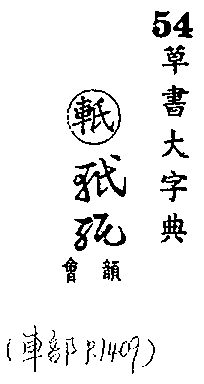 54
草書大字典
軝
韻會
(車部 P.1407)